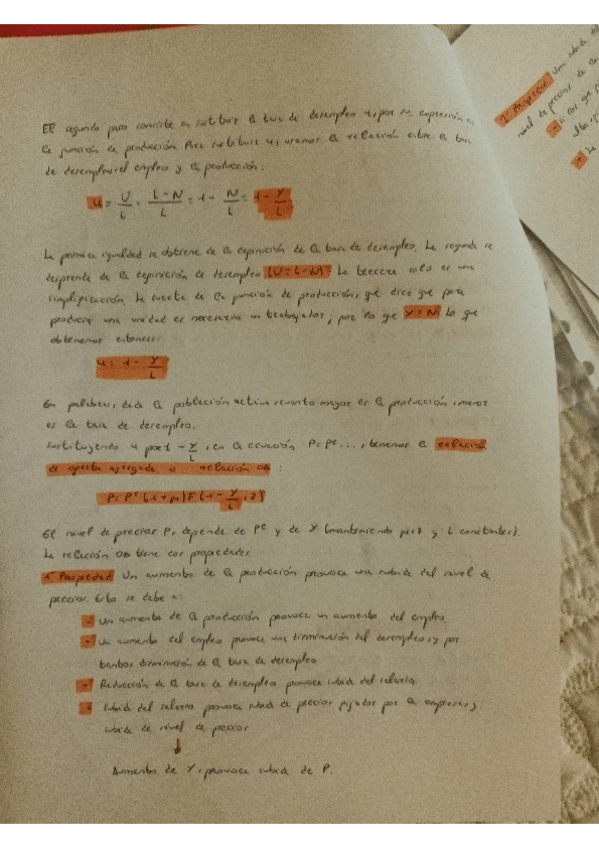 El segundo paso consiste en sustituir la tasa de desempleo u, por su expresión en
la función de producción. Para sustituir u, usamos la relación entre la tasa
de desempleo, el empleo y la producción:
u = U/L = L-N/L = 1 - N/L = 1 - Y/L
La primera igualdad se obtiene de la definición de la tasa de desempleo. La segunda se
desprende de la definición de desempleo (U = L - N). La tercera solo es una
simplificación. La cuarta de la función de producción, que dice que para
producir una unidad es necesario un trabajador, por lo que Y = N. Lo que
obtenemos entonces:
u = 1 - Y/L
En palabras, dada la población activa, cuanto mayor es la producción, menor
es la tasa de desempleo.
Sustituyendo u por 1 - Y/L, en la ecuación P = Pe..., tenemos la relación
de oferta agregada o relación OA:
P = Pe (1+μ) F (1 - Y/L, z)
El nivel de precios P, depende de Pe y de Y (manteniendo μ, z y L constantes).
La relación OA tiene dos propiedades
1ª Propiedad Un aumento de la producción provoca una subida del nivel de
precios. Esto se debe a:
- Un aumento de la producción provoca un aumento del empleo
- Un aumento del empleo provoca una disminución del desempleo, y por
tanto, disminución de la tasa de desempleo
- Reducción de la tasa de desempleo provoca subida del salario
- Subida del salario provoca subida de precios fijados por la empresas y
subida de nivel de precios
↓
Aumento de Y, provoca subida de P.
1ª Propiedad Una subida
nivel de precios